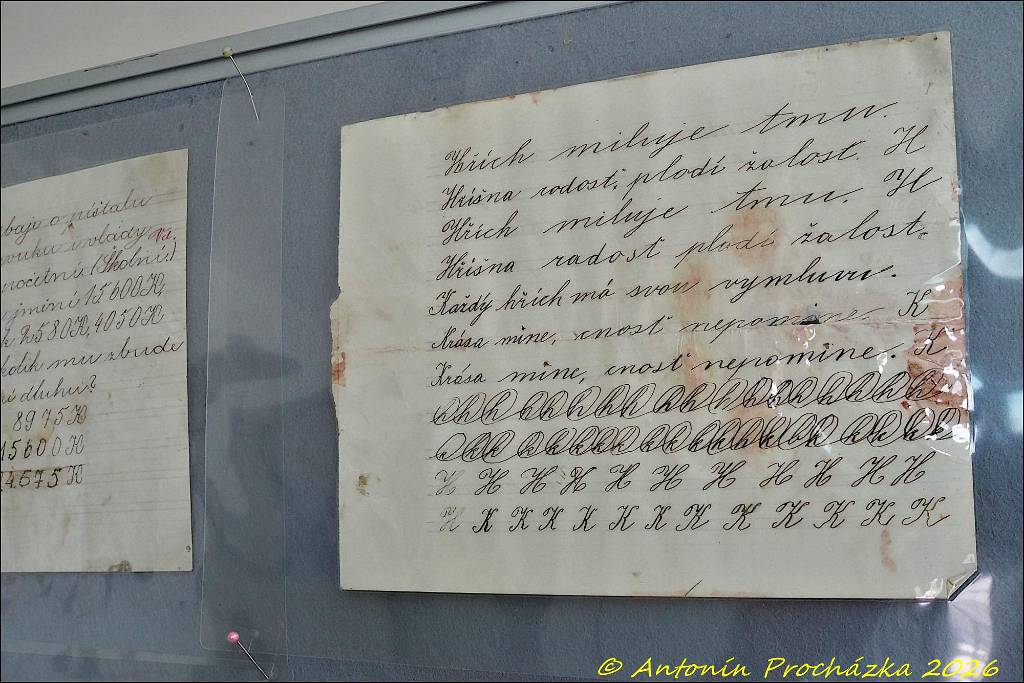 baje o píšťalu
výuku i vlády
početní (Školní)
jmění 15600K,
2580K, 4050K
kolik mu zbude
dluhu?
8975K
15600K
14575K
Hřích miluje tmu.
Hříšna radost, plodí žalost. H
Hřích miluje tmu. H
Hříšna radost plodí žalost.
Každý hřích má svou vymluvu.
Krása mine, cnost nepomine K
Krása mine, cnost nepomine. K
h h h h h h h h h h h h h h h h h
k k k k k k k k k k k k k k k k k
H H H H H H H H H H H
H K K K K K K K K K K K K
© Antonín Procházka 2026